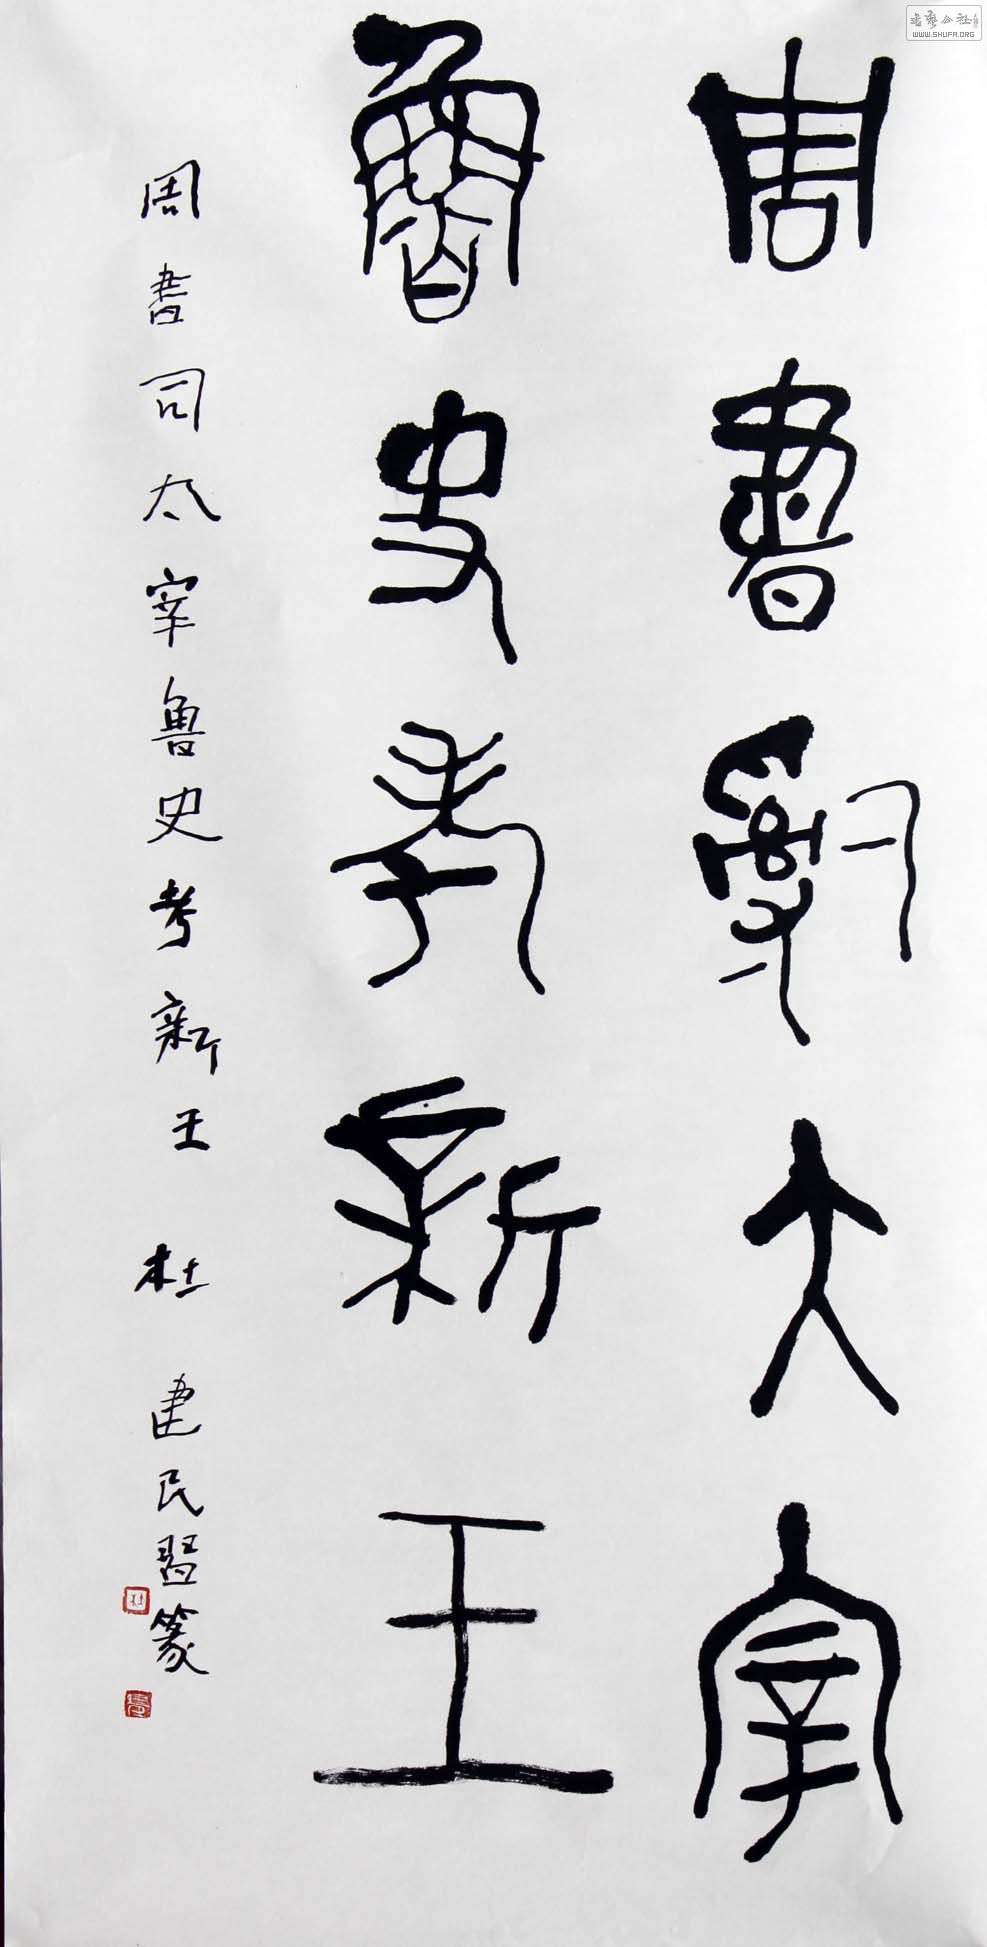 周書嗣大宰
魯史考新王
周書司太宰魯史考新王 杜建民習篆
杜
书艺公社
WWW.SHUFA.ORG